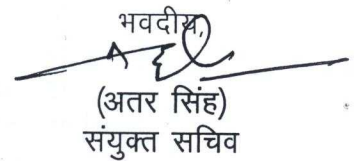 भवदीय,
(अतर सिंह)
संयुक्त सचिव